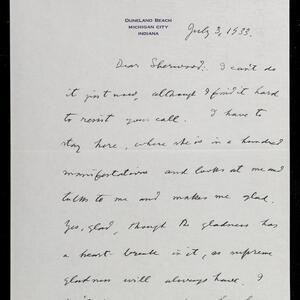 DUNELAND BEACH
MICHIGAN CITY
INDIANA
July 3, 1933.
Dear Sherwood: I can't do
it just now, although I find it hard
to resist your call. I have to
stay here, where she is in a hundred
manifestations and looks at me and
talks to me and makes me glad.
Yes, glad, though the gladness has
a heart-break in it, as supreme
gladness will always have. I